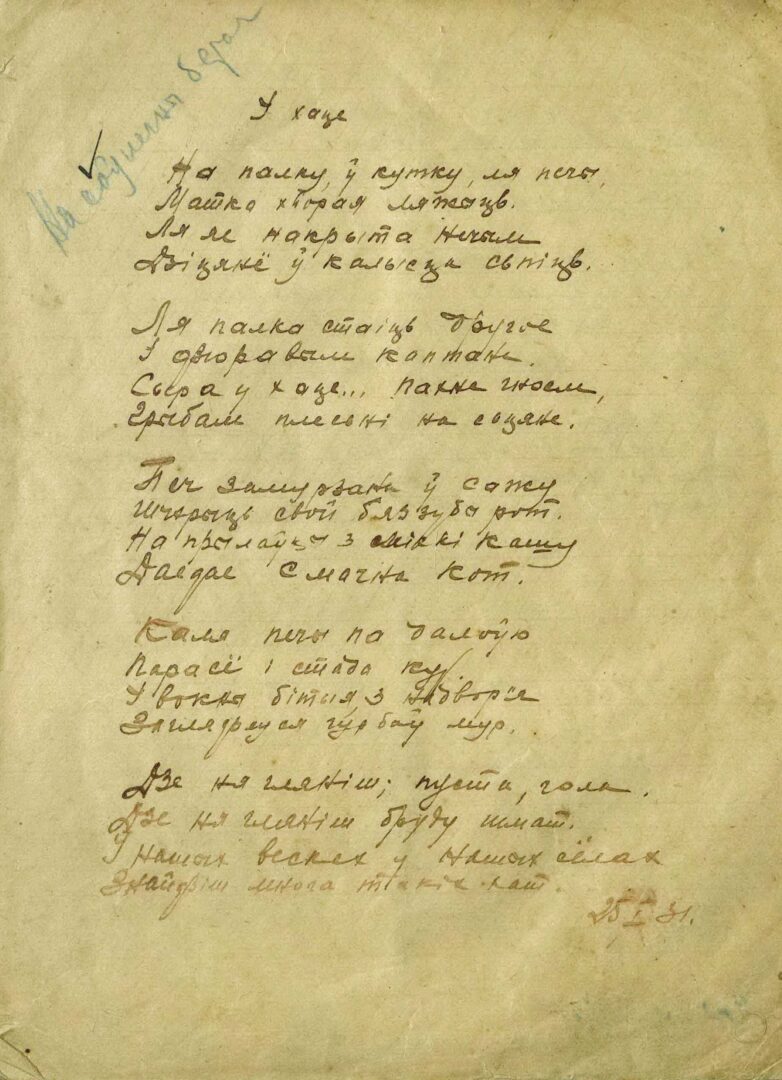 На соўнечны бераг
У хаце
На палку, ў кутку, ля печы,
Матка хворая ляжыць.
Ля яе накрыта нечым
Дзіцянё ў калысцы сьпіць.
Ля палка стаіць другое
У дзюравым каптане.
Сыра у хаце... пахне гноем,
Грыбам плесьні на сьцяне.
Печ замурзана ў сажу
Шчэрыць свой бяззубы рот.
На прылаўку з міскі кашу
Даедае смачна кот.
Каля печы па далоўю
Парасё і стада кур.
У вокны бітыя з надвор'я
Заглядзеуся гурбаў мур.
Дзе ня гляніш; пуста, гола.
Дзе ня гляніш бруду шмат.
У нашых вёсках у нашых сёлах
Знайдзіш многа такіх хат.
25/I 31.